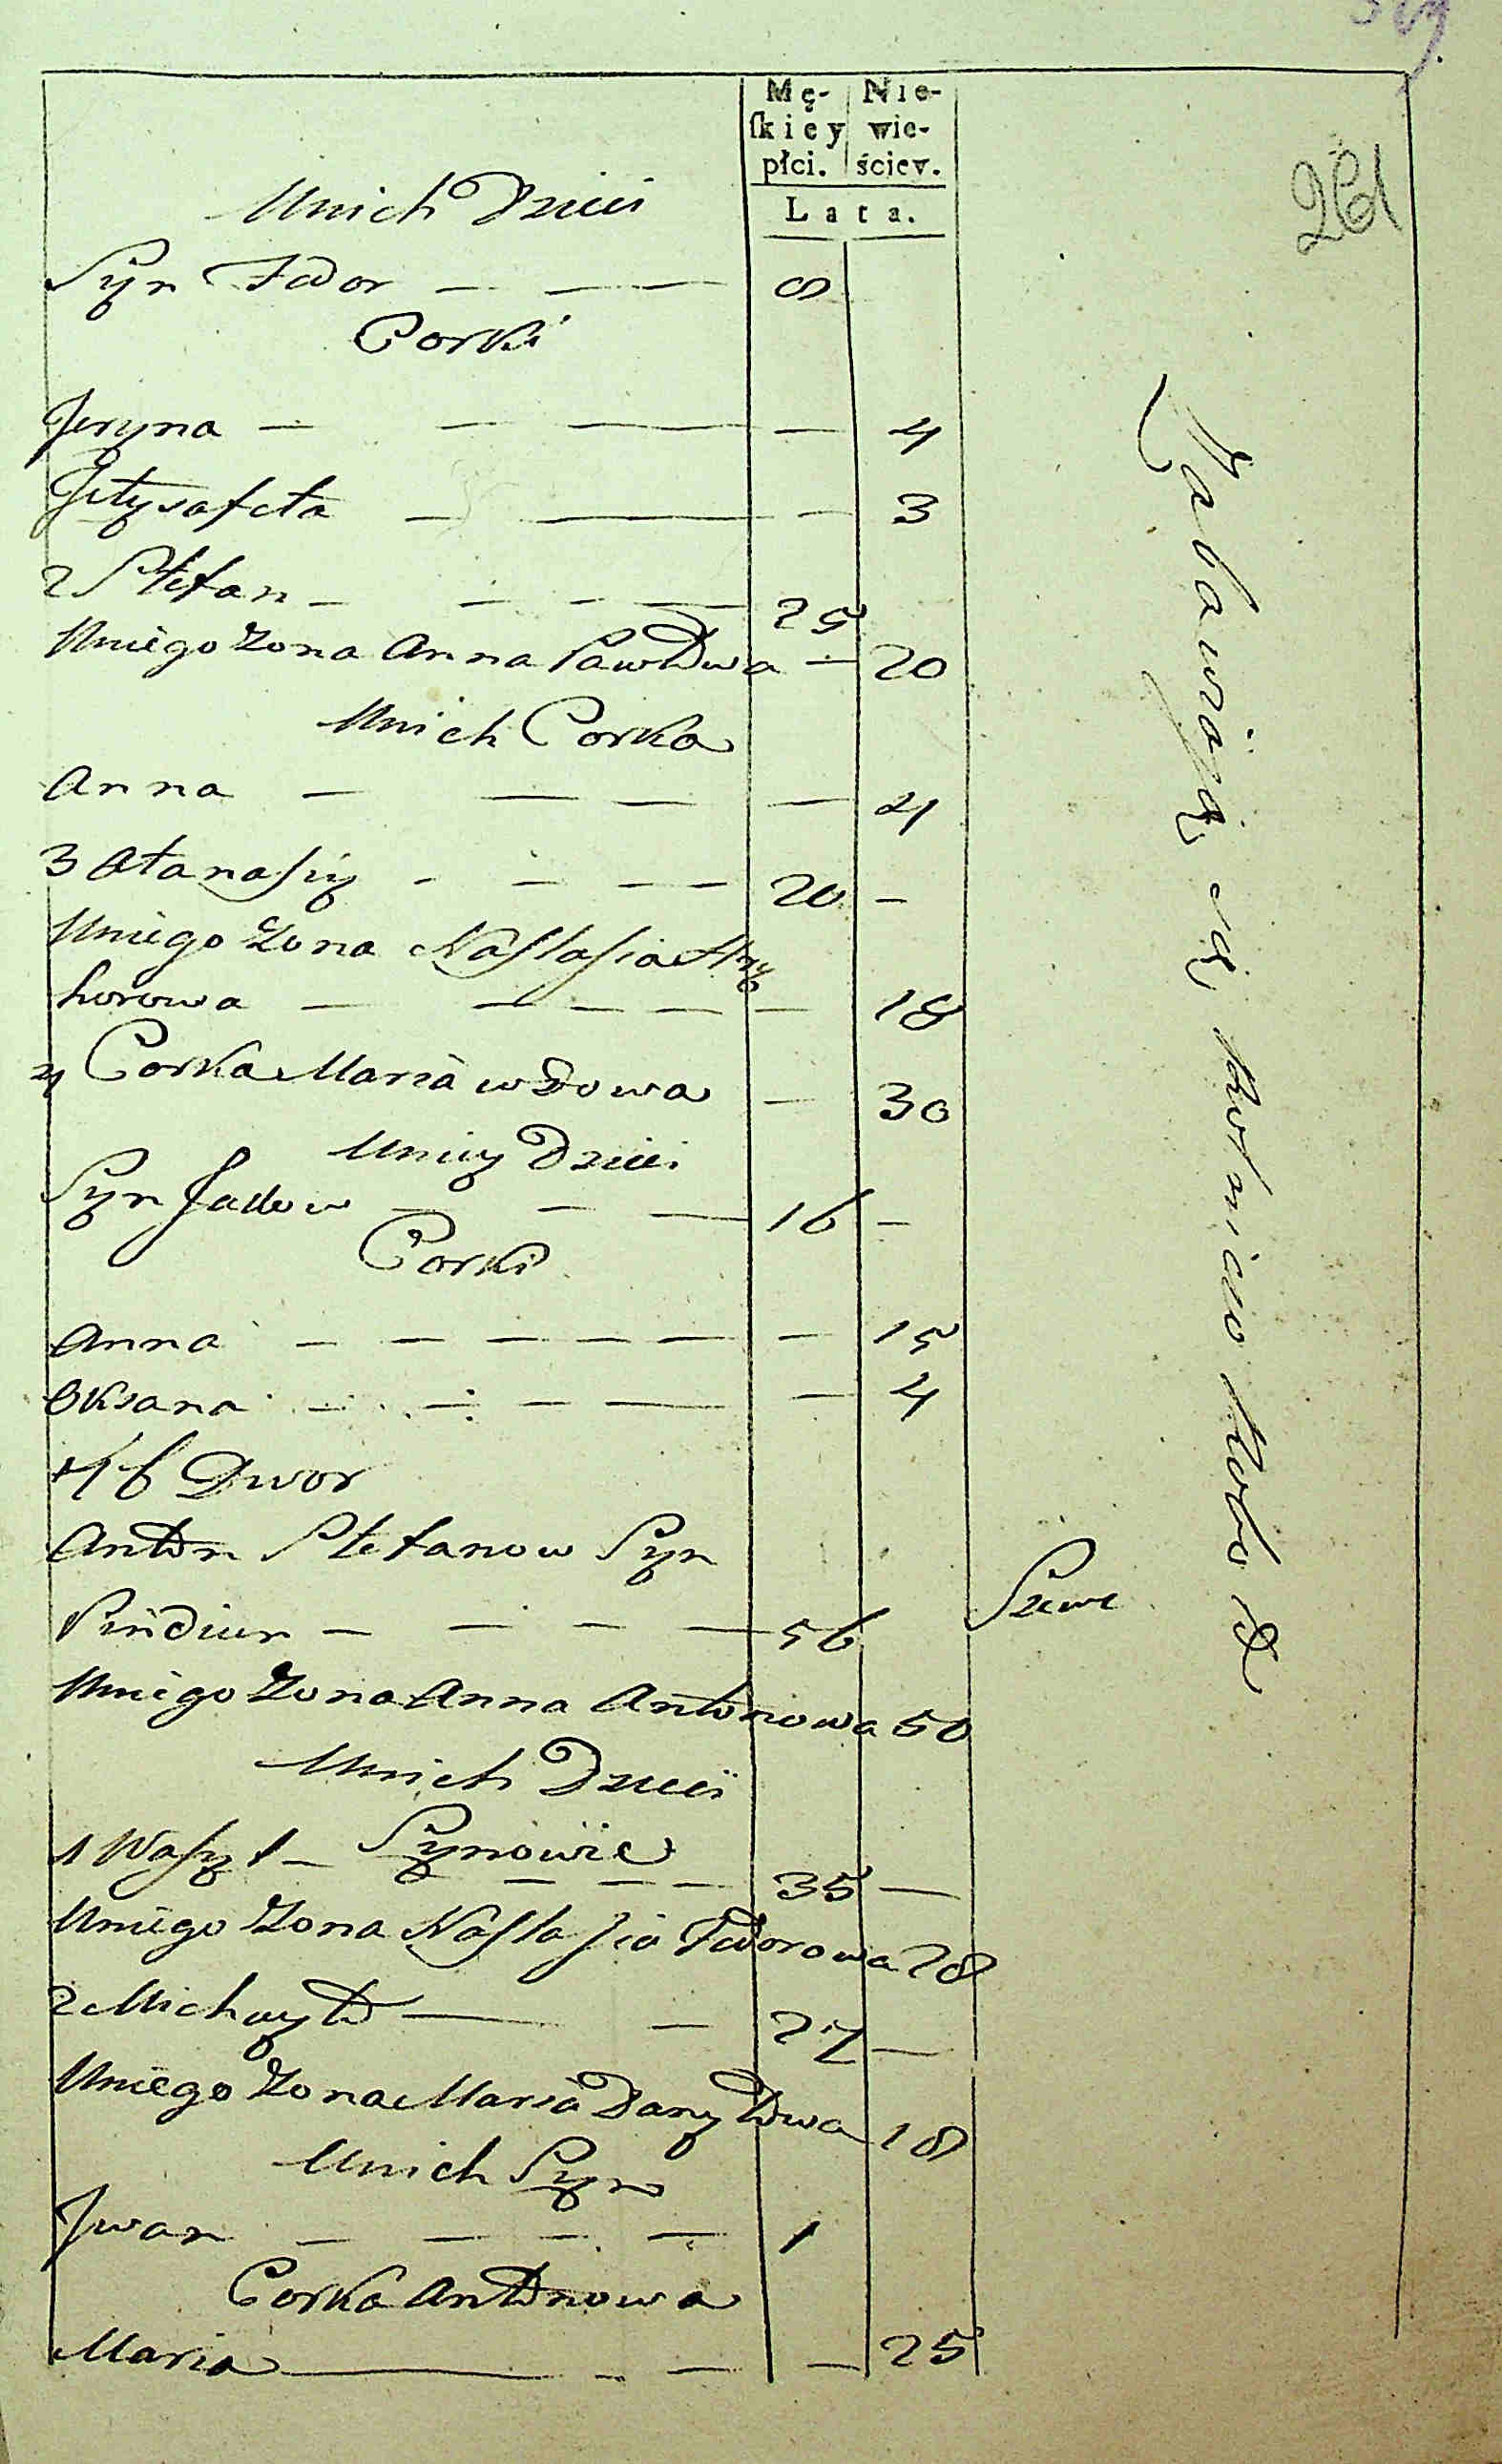 261
Mę- Nie-
ſkiey wie-
płci. ściey.
Lata.
Unich Dzieci
Syn Fedor — — — 8
Corki
Jeryna — — — — 4
Jełysafeta — — — 3
2 Stefan — — — — 25
Uniego Zona Anna Pawłowa — 20
Unich Corka
Anna — — — — 4
3 Atanasiy - — — — 20 —
Uniego Zona Nastasia Hry
horowa — — — — — 18
4 Corka Maria wdowa — 30
Uniey Dzieci
Syn — — — 16 —
Corki
Anna — — — — — — 15
Oksana — — — — — 4
46 Dwor
Anton Stefanow Syn
Pindiur — — — — 56
Szewc
Uniego Zona Anna Antonowa 50
Unich Dzieci
Synowie
1 Wasyl — — — — 35 —
Uniego Zona Nastasia Fedorowa 28
2 Michayło — — 27 —
Uniego Zona Maria Danyłowa 18
Unich Syn
Jwan — — — — 1
Corka Antonowa
Maria — — — — 25
Zabawiają się